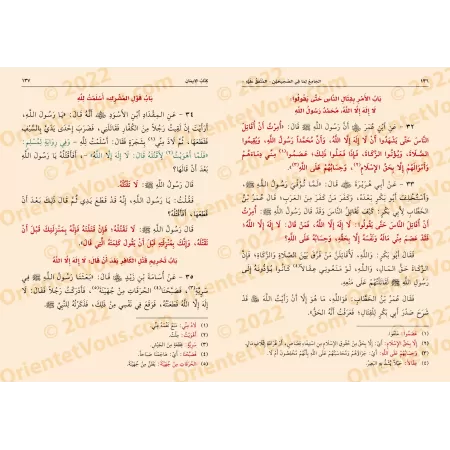 ١٣٦ الجامع لما في الصحيحين - المتفق عليه
بَابُ الأَمْرِ بِقِتَالِ النَّاسِ حَتَّى يَقُولُوا
لَا إِلَهَ إِلَّا اللَّهُ، مُحَمَّدٌ رَسُولُ اللَّهِ
٣٢ - عَنِ ابْنِ عُمَرَ أَنَّ رَسُولَ اللَّهِ ﷺ قَالَ: «أُمِرْتُ أَنْ أُقَاتِلَ
النَّاسَ حَتَّى يَشْهَدُوا أَنْ لَا إِلَهَ إِلَّا اللَّهُ، وَأَنَّ مُحَمَّدًا رَسُولُ اللَّهِ، وَيُقِيمُوا
الصَّلَاةَ، وَيُؤْتُوا الزَّكَاةَ، فَإِذَا فَعَلُوا ذَلِكَ، عَصَمُوا(١) مِنِّي دِمَاءَهُمْ
وَأَمْوَالَهُمْ إِلَّا بِحَقِّ الإِسْلَامِ(٢)، وَحِسَابُهُمْ عَلَى اللَّهِ»(٣).
٣٣ - عَنْ أَبِي هُرَيْرَةَ قَالَ: لَمَّا تُوُفِّيَ رَسُولُ اللَّهِ ﷺ
وَاسْتُخْلِفَ أَبُو بَكْرٍ بَعْدَهُ، وَكَفَرَ مَنْ كَفَرَ مِنَ الْعَرَبِ، قَالَ عُمَرُ بْنُ
الْخَطَّابِ لِأَبِي بَكْرٍ: كَيْفَ تُقَاتِلُ النَّاسَ وَقَدْ قَالَ رَسُولُ اللَّهِ ﷺ:
«أُمِرْتُ أَنْ أُقَاتِلَ النَّاسَ حَتَّى يَقُولُوا: لَا إِلَهَ إِلَّا اللَّهُ، فَمَنْ قَالَ: لَا إِلَهَ إِلَّا اللَّهُ،
فَقَدْ عَصَمَ مِنِّي مَالَهُ وَنَفْسَهُ إِلَّا بِحَقِّهِ، وَحِسَابُهُ عَلَى اللَّهِ»؟
فَقَالَ أَبُو بَكْرٍ: وَاللَّهِ، لَأُقَاتِلَنَّ مَنْ فَرَّقَ بَيْنَ الصَّلَاةِ وَالزَّكَاةِ؛ فَإِنَّ
الزَّكَاةَ حَقُّ الْمَالِ، وَاللَّهِ، لَوْ مَنَعُونِي عِقَالًا(٤) كَانُوا يُؤَدُّونَهُ إِلَى
رَسُولِ اللَّهِ ﷺ لَقَاتَلْتُهُمْ عَلَى مَنْعِهِ.
فَقَالَ عُمَرُ بْنُ الْخَطَّابِ: فَوَاللَّهِ، مَا هُوَ إِلَّا أَنْ رَأَيْتُ اللَّهَ قَدْ
شَرَحَ صَدْرَ أَبِي بَكْرٍ لِلْقِتَالِ؛ فَعَرَفْتُ أَنَّهُ الْحَقُّ.
(١) عَصَمُوا:
(٢) إِلَّا بِحَقِّ الإِسْلَامِ: أَيْ: إِلَّا بِحَقٍّ مِنْ حُقُوقِ الإِسْلَامِ
(٣) وَحِسَابُهُمْ عَلَى اللَّهِ: أَيْ:
(٤) عِقَالًا:
كِتَابُ الإِيمَانِ ١٣٧
بَابُ قَوْلِ الْمُشْرِكِ: أَسْلَمْتُ لِلَّهِ
٣٤ - عَنِ الْمِقْدَادِ ابْنِ الأَسْوَدِ أَنَّهُ قَالَ: «يَا رَسُولَ اللَّهِ،
أَرَأَيْتَ إِنْ لَقِيتُ رَجُلًا مِنَ الْكُفَّارِ فَقَاتَلَنِي، فَضَرَبَ إِحْدَى يَدَيَّ بِالسَّيْفِ
فَقَطَعَهَا، ثُمَّ لَاذَ مِنِّي(١) بِشَجَرَةٍ فَقَالَ: أَسْلَمْتُ لِلَّهِ - وَفِي رِوَايَةٍ لِمُسْلِمٍ:
فَلَمَّا أَهْوَيْتُ(٢) لِأَقْتُلَهُ قَالَ: لَا إِلَهَ إِلَّا اللَّهُ -، أَفَأَقْتُلُهُ يَا رَسُولَ اللَّهِ
بَعْدَ أَنْ قَالَهَا؟
قَالَ رَسُولُ اللَّهِ ﷺ: لَا تَقْتُلْهُ.
فَقُلْتُ: يَا رَسُولَ اللَّهِ، إِنَّهُ قَدْ قَطَعَ يَدِي ثُمَّ قَالَ ذَلِكَ بَعْدَ أَنْ
قَطَعَهَا، أَفَأَقْتُلُهُ؟
قَالَ رَسُولُ اللَّهِ ﷺ: لَا تَقْتُلْهُ، فَإِنْ قَتَلْتَهُ فَإِنَّهُ بِمَنْزِلَتِكَ قَبْلَ أَنْ
تَقْتُلَهُ، وَإِنَّكَ بِمَنْزِلَتِهِ قَبْلَ أَنْ يَقُولَ كَلِمَتَهُ الَّتِي قَالَ».
بَابُ تَحْرِيمِ قَتْلِ الْكَافِرِ بَعْدَ أَنْ قَالَ: لَا إِلَهَ إِلَّا اللَّهُ
٣٥ - عَنْ أُسَامَةَ بْنِ زَيْدٍ قَالَ: «بَعَثَنَا رَسُولُ اللَّهِ ﷺ فِي
سَرِيَّةٍ(٣)، فَصَبَّحْنَا(٤) الْحُرَقَاتِ مِنْ جُهَيْنَةَ(٥)، فَأَدْرَكْتُ رَجُلًا فَقَالَ: لَا
إِلَهَ إِلَّا اللَّهُ، فَطَعَنْتُهُ، فَوَقَعَ فِي نَفْسِي مِنْ ذَلِكَ، فَذَكَرْتُهُ لِلنَّبِيِّ ﷺ
(١) لَاذَ مِنِّي:
(٢) أَهْوَيْتُ:
(٣) سَرِيَّةٍ: قِطْعَةٌ مِنَ الْجَيْشِ.
(٤) فَصَبَّحْنَا: أَيْ: هَاجَمْنَا صَبَاحًا.
(٥) الْحُرَقَاتِ مِنْ جُهَيْنَةَ:
© 2022
OrientetVous.com